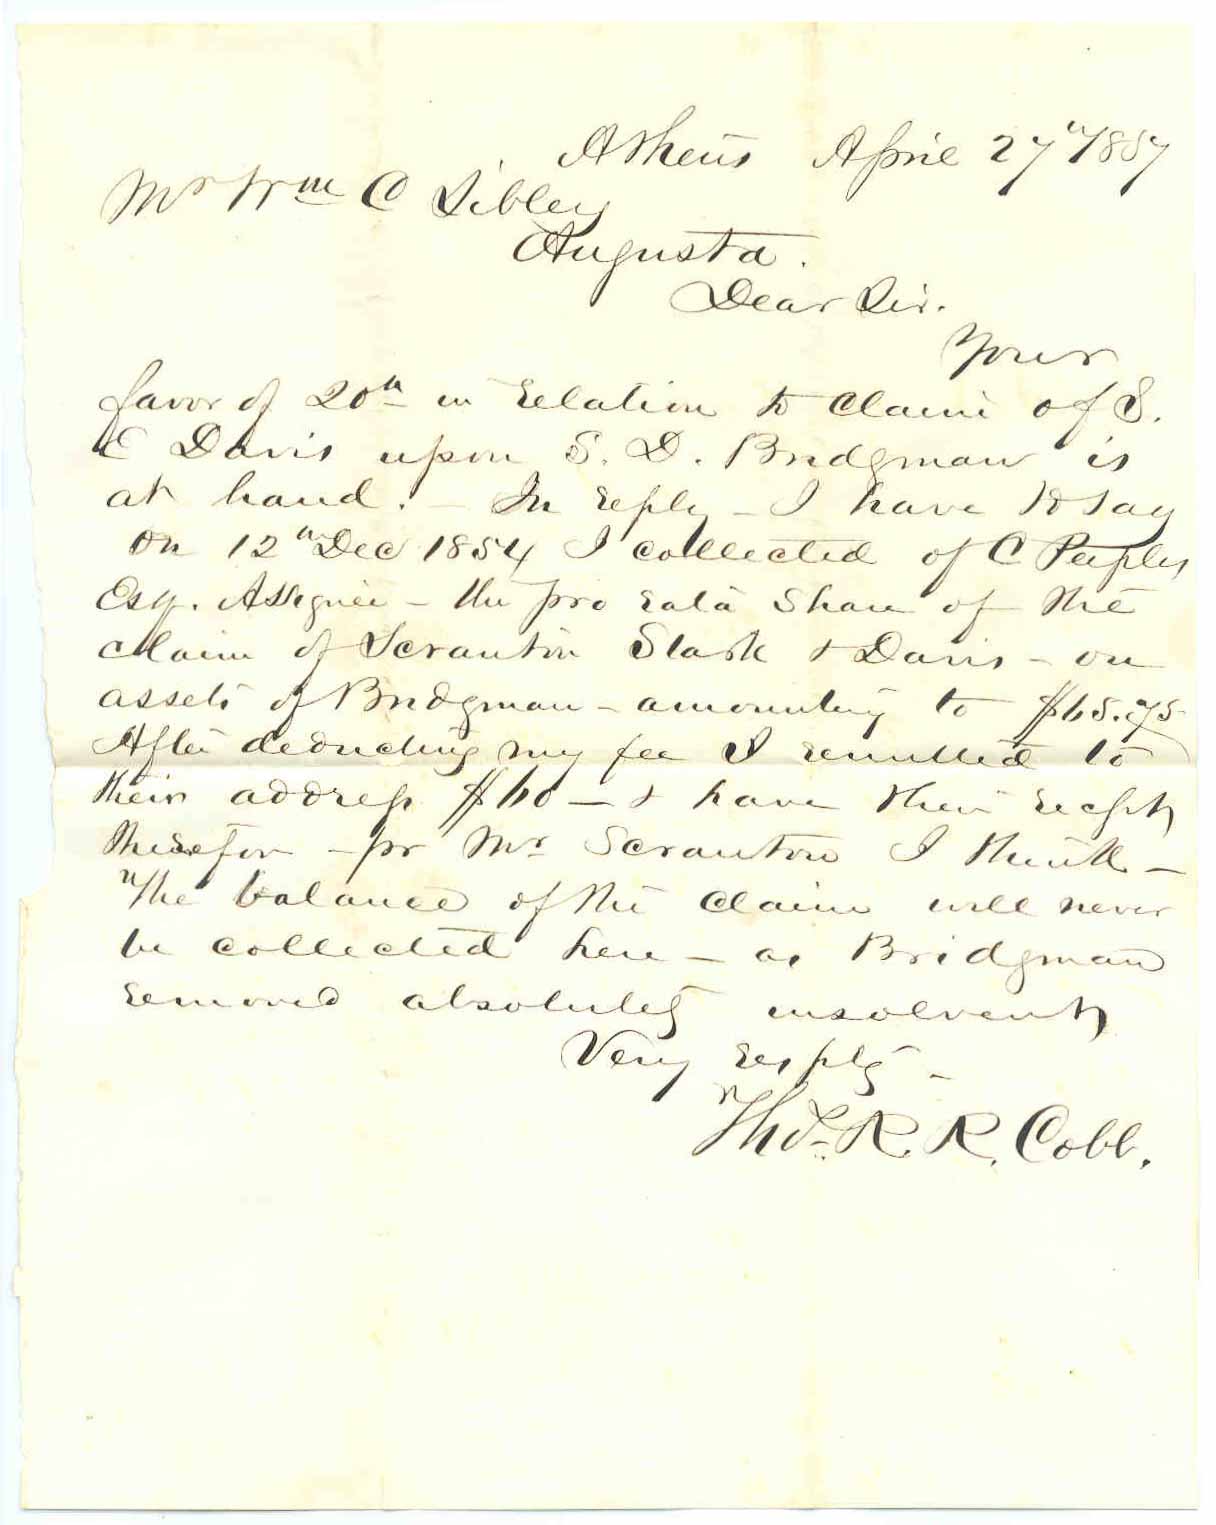 Athens April 27th 1857
Mr Wm C Sibley
Augusta.
Dear Sir.
Your
favor of 20th in relation to claim of S.
E Davis upon S. D. Bridgman is
at hand. - In reply - I have to say
on 12th Dec 1854 I collected of C Peeples
Esq. Assignee - the pro rata share of the
claim of Scranton Stark & Davis - on
assets of Bridgman - amounting to $65.75
After deducting my fee I remitted to
their address $60 - & have their recpt
therefor - pr Mr Scranton I think -
The balance of the claim will never
be collected here - as Bridgman
removed absolutely insolvent
Very resply -
Thos. R. R. Cobb.